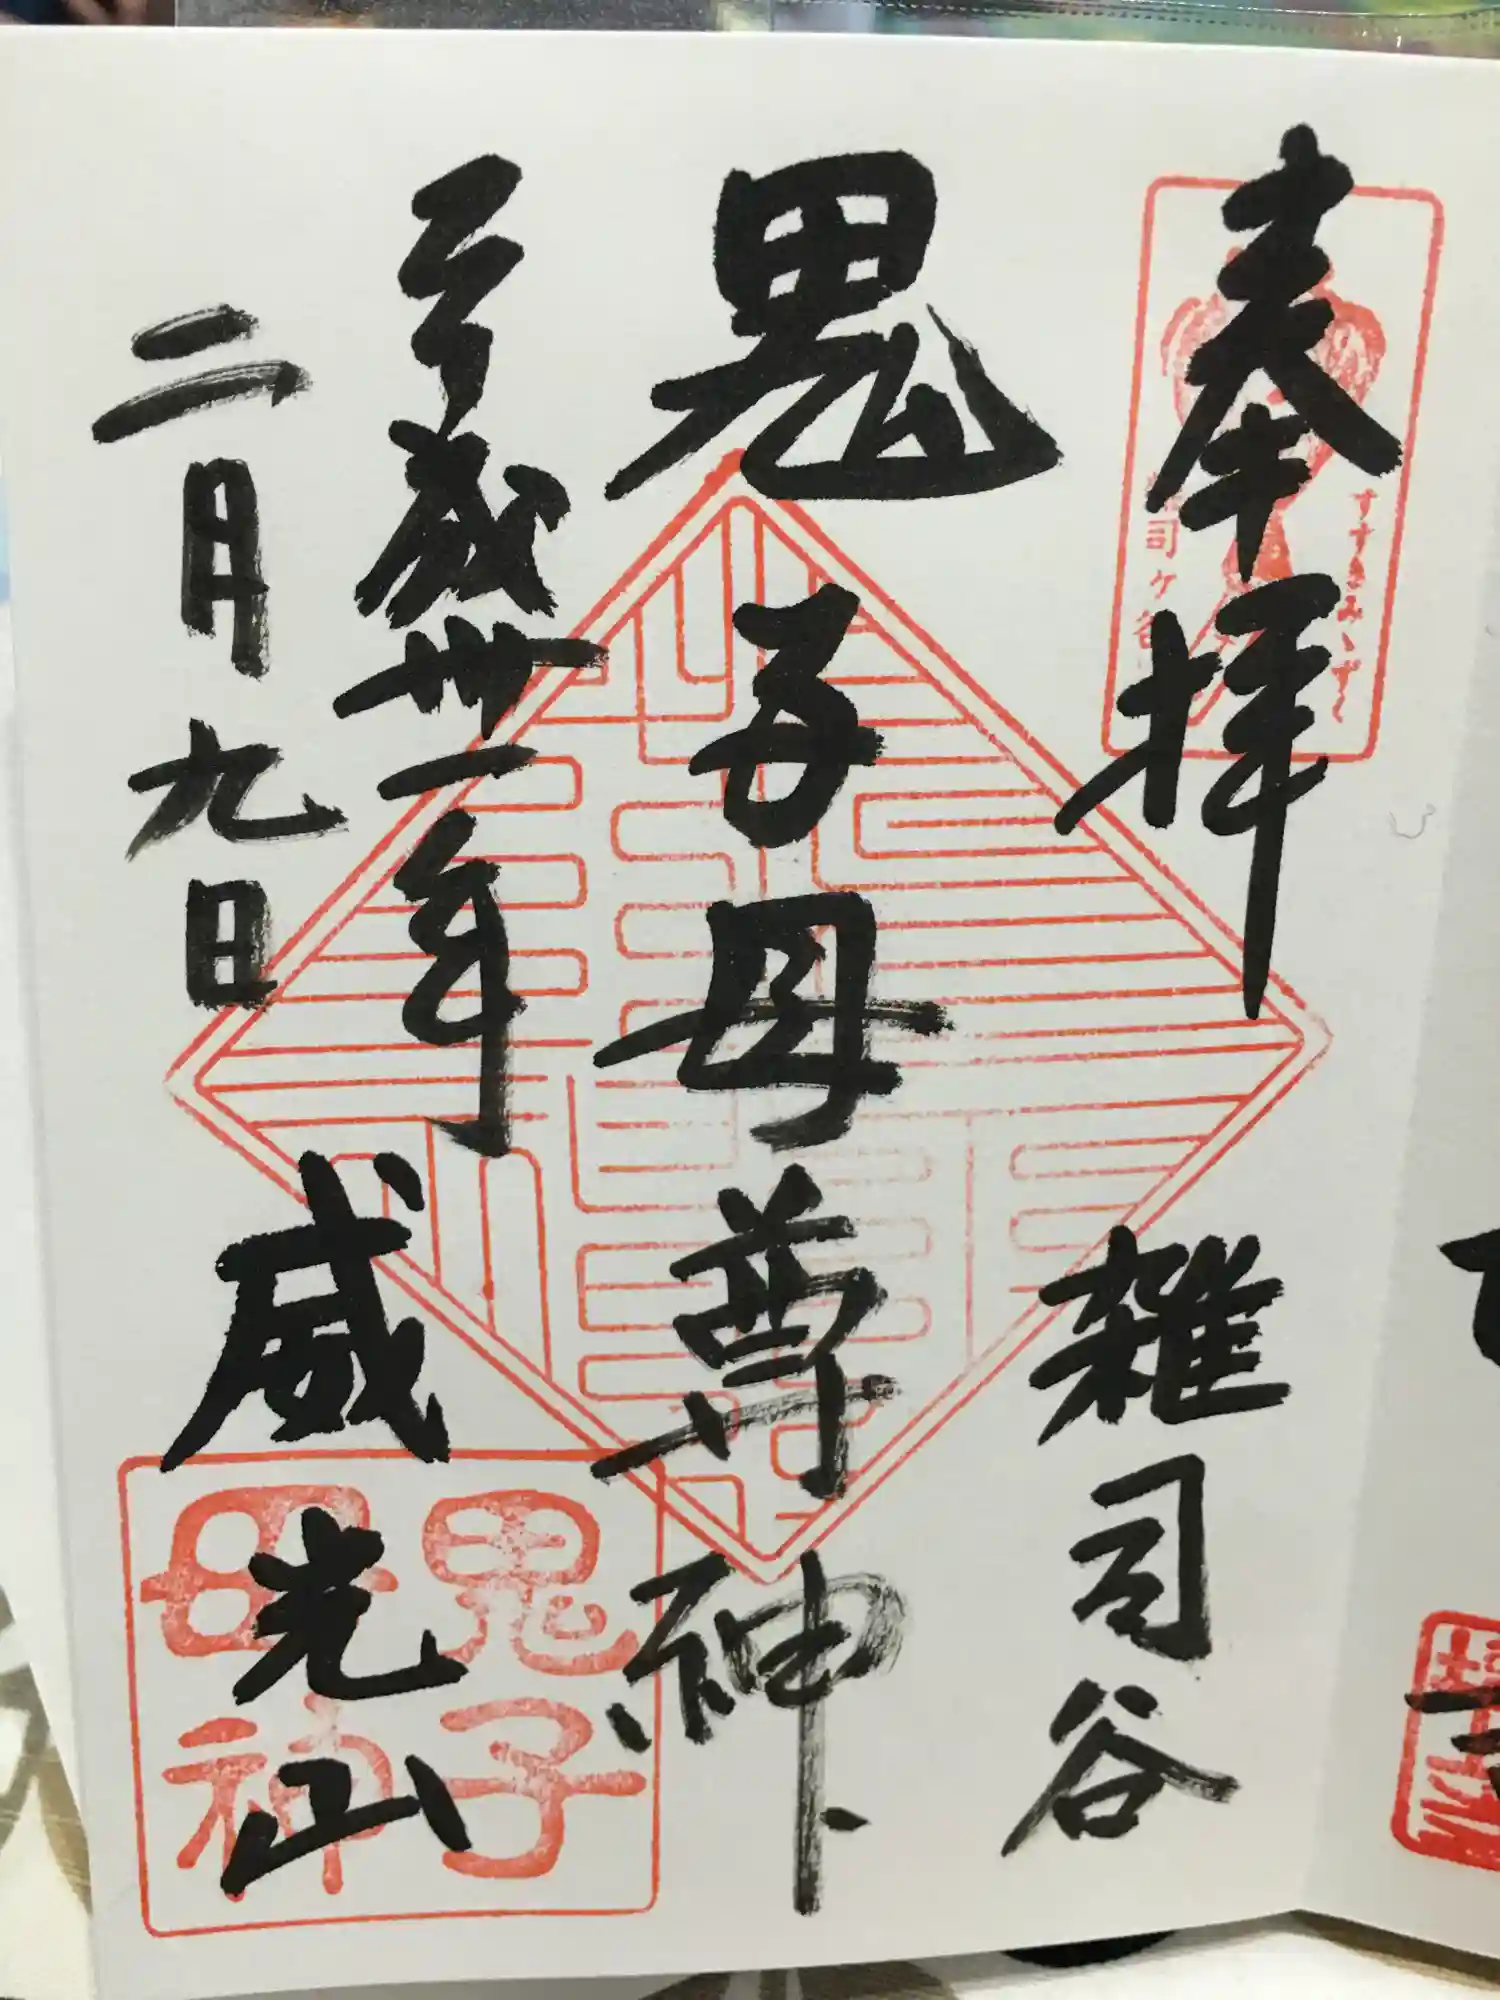 奉拝 雑司谷
すすきみゝずく
司ヶ谷
鬼子母尊神
平成卅一年
二月九日
威光山
鬼子
母神